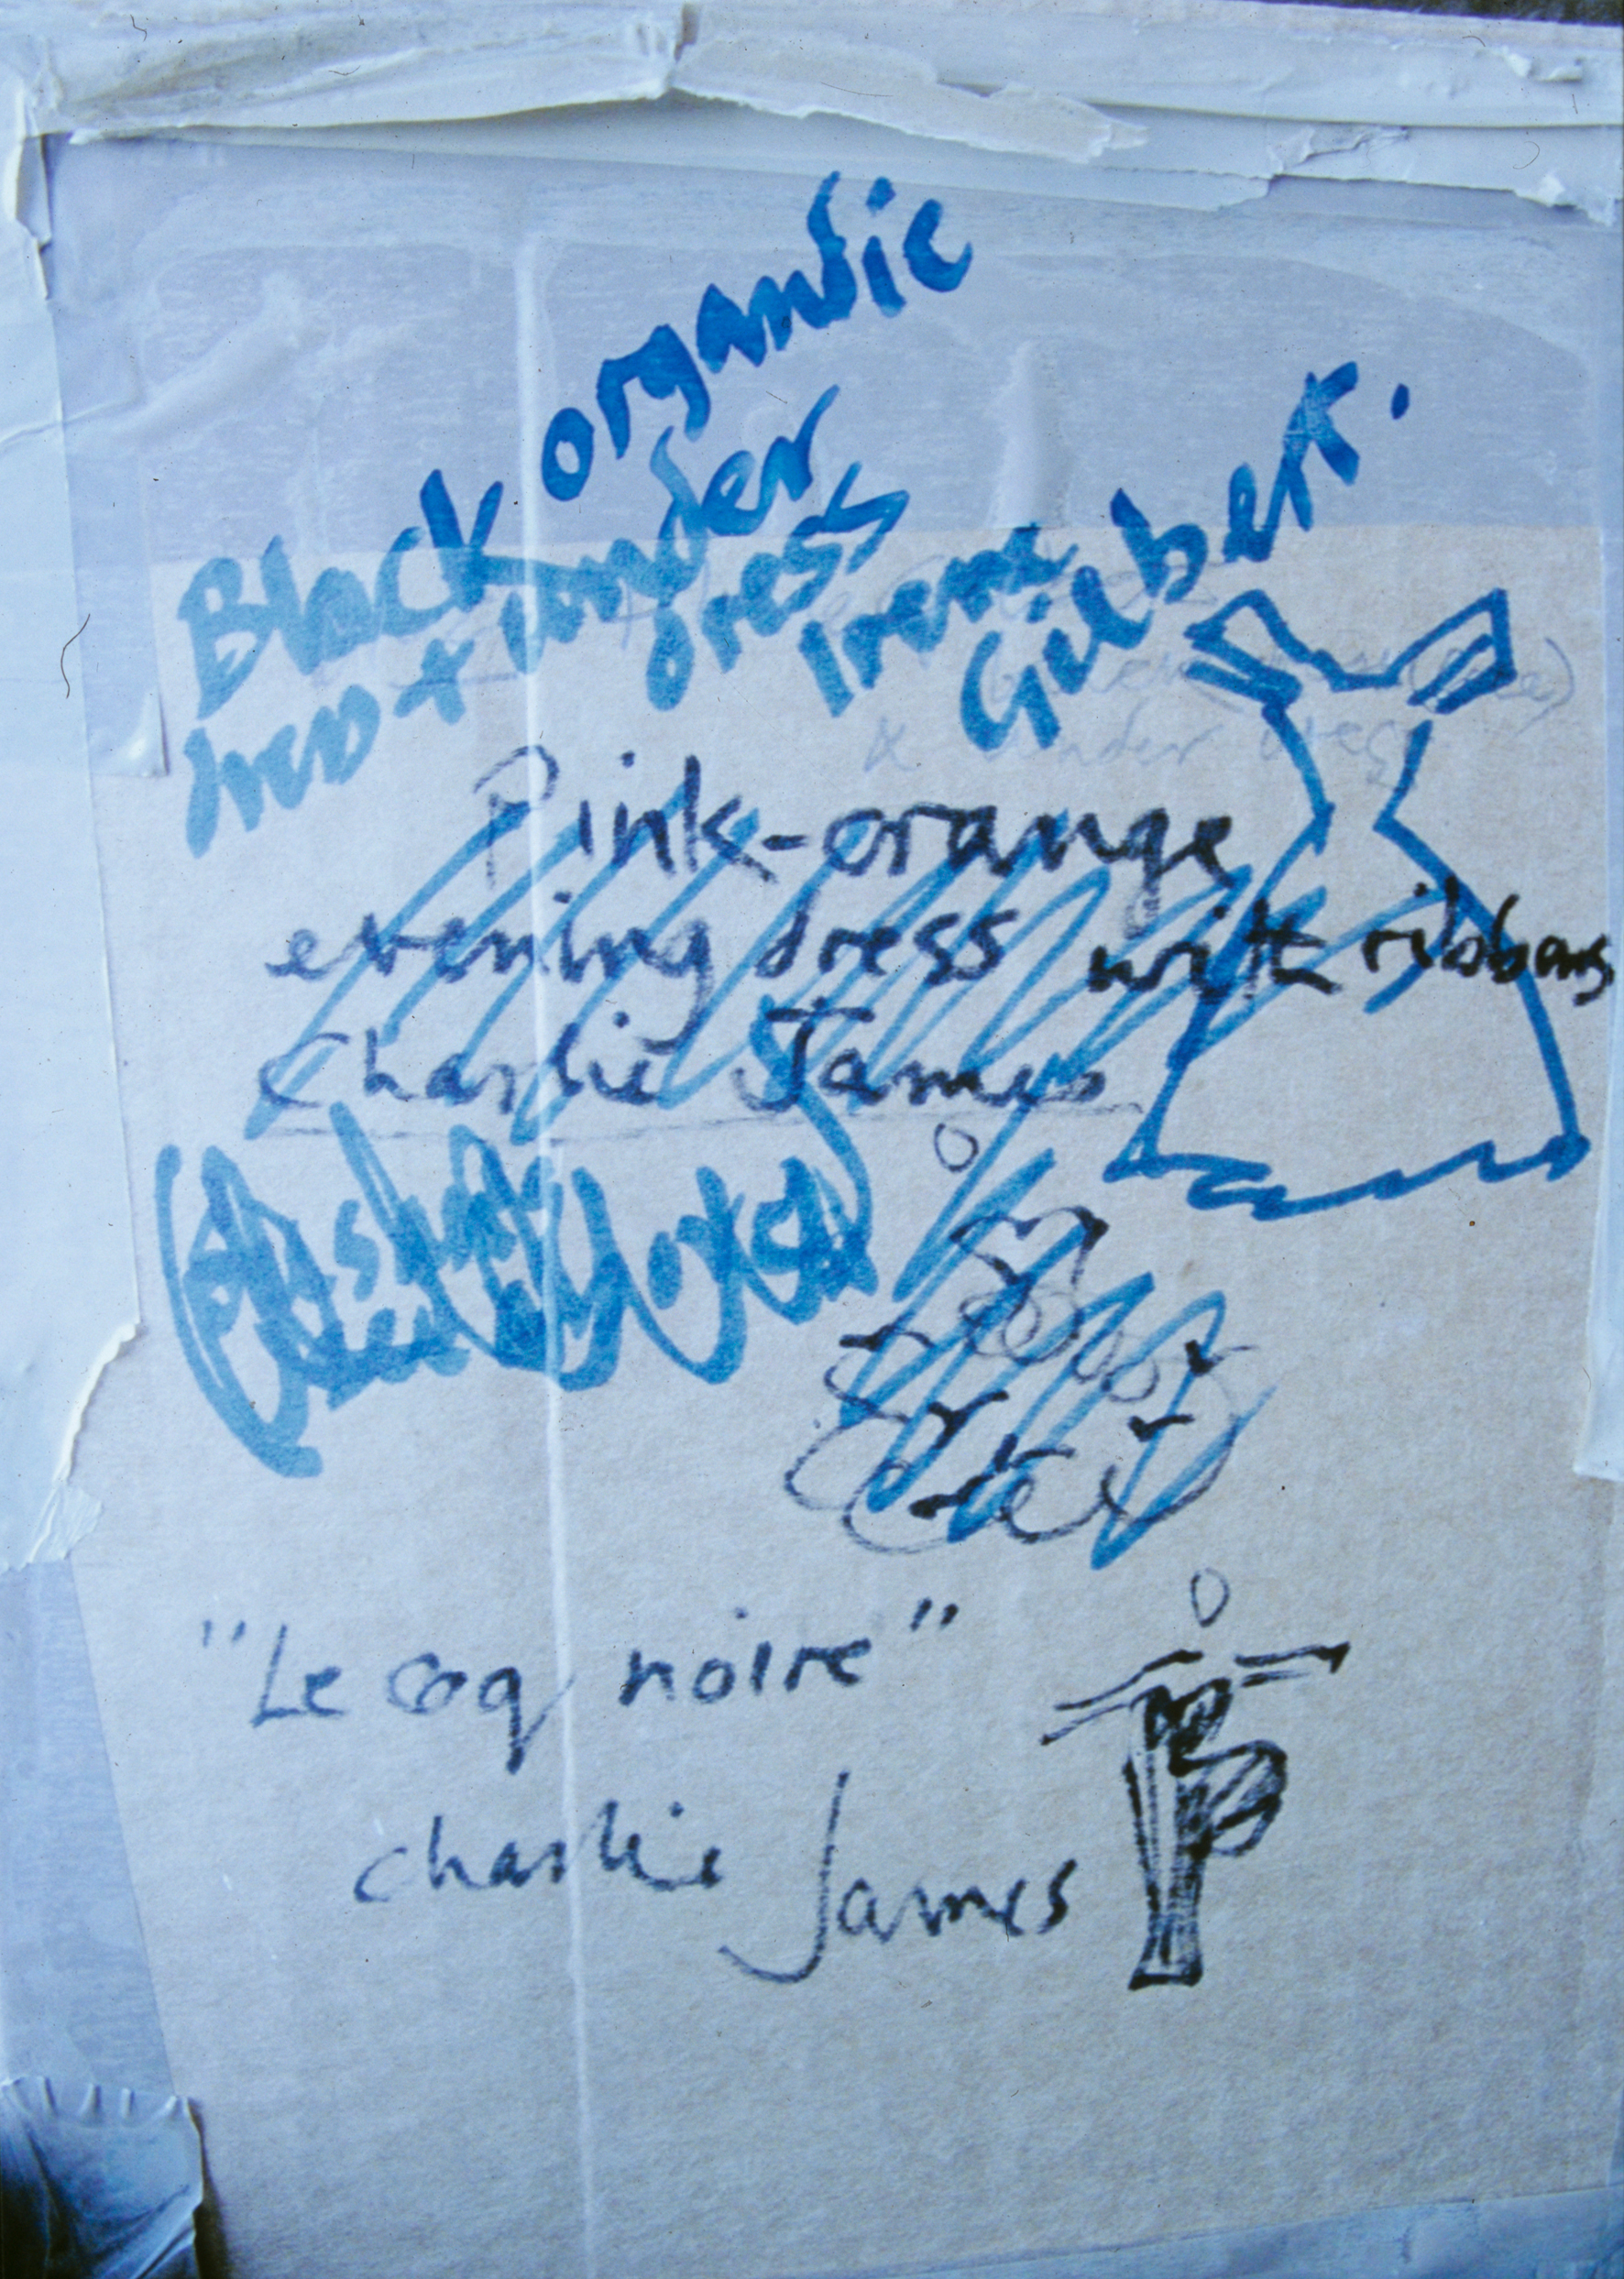 Black organdie
+ under
dress
Irene
Gilbert.
& under dress
Pink-orange
evening dress with ribbons
Charlie James
"Le coq noire"
charlie James